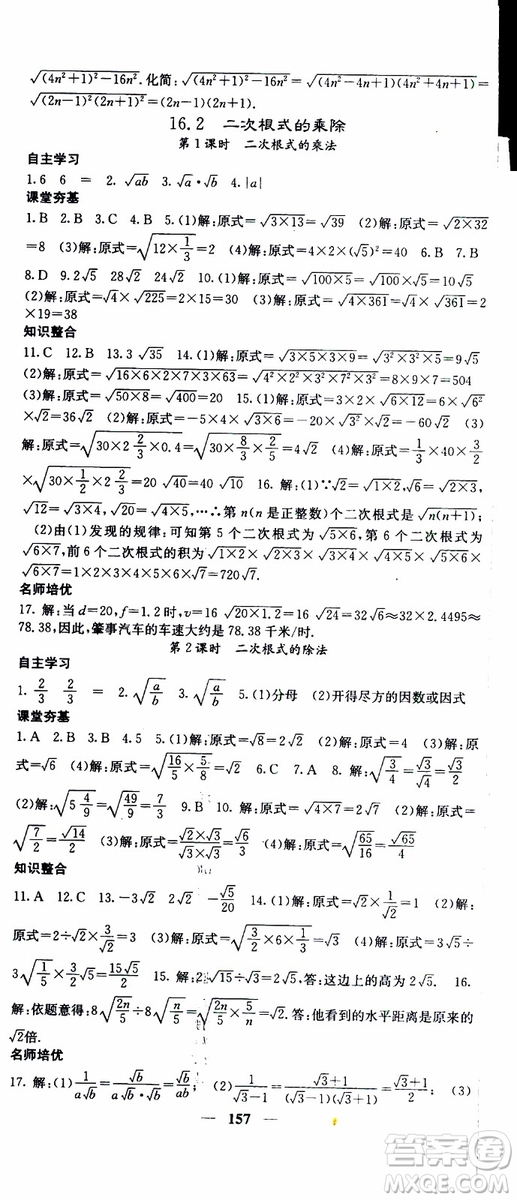 √((4n²+1)²-16n²). 化简：√((4n²+1)²-16n²)=√((4n²-4n+1)(4n²+4n+1))=
√((2n-1)²(2n+1)²)=(2n-1)(2n+1).
16.2 二次根式的乘除
第1课时 二次根式的乘法
自主学习
1.6 6 = 2.√ab 3.√a·√b 4.|a|
课堂夯基
1.B 2.B 3.C 4.B 5.(1)解：原式=√(3×13)=√39 (2)解：原式=√(2×32)
=8 (3)解：原式=√(12×1/3)=2 (4)解：原式=4×2×(√5)²=40 6.B 7.B
8.D 9.2√5 28√2 24√2 10.(1)解：原式=√(100×5)=√100×√5=10√5
(2)解：原式=√4×√225=2×15=30 (3)解：原式=√(4×361)=√4×√361=2
×19=38
知识整合
11.C 12.B 13.3√35 14.(1)解：原式=√(3×5×3×9)=√(3²×3²×5)=9√5
(2)解：原式=√(16×6×2×7×3×63)=√(4²×2²×3²×7²×3²)=8×9×7=504
(3)解：原式=√(50×8)=√400=20 15.(1)解：原式=3×2×√(6×12)=6×√6²
×√2=36√2 (2)解：原式=-5×4×√(3²×6²×2)=-360√2 (3)
解：原式=√(30×2 2/3×2/5)=√(30×8/3×2/5)=4√2 (4)解：原式=1/3×40×3/2
×√(30×1/2×2 2/3)=20×√40=40√10 16.解：(1)∵√2=√(1×2),√6=√(2×3),
√12=√(3×4),√20=√(4×5),…∴第n(n是正整数)个二次根式是√(n(n+1)).
(2)由(1)发现的规律：可知第5个二次根式为√(5×6),第6个二次根式为
√(6×7),前6个二次根式的积为√(1×2)×√(2×3)×√(3×4)×√(4×5)×√(5×6)×
√(6×7)=1×2×3×4×5×6×√(1×7)=720√7.
名师培优
17. 解：当d=20,f=1.2时,v=16√(20×1.2)=16√24=32√6≈32×2.4495≈
78.38,因此,肇事汽车的车速大约是78.38千米/时.
第2课时 二次根式的除法
自主学习
1.2/3 2/3 = 2.√(a/b) 3.√a/√b 4.(1)分母 (2)开得尽方的因数或因式
课堂夯基
1.A 2.B 3.B 4.5 5.(1)解：原式=√8=2√2 (2)解：原式=4 (3)解：原
式=√6 (4)解：原式=√(16/5×5/8)=√2 6.B 7.B 8.(1)解：原式=√(3/4)=√3/√4=√3/2
(2)解：原式=√(5 4/9)=√(49/9)=7/3 9.C 10.(1)解：原式=√(4×7)=2√7 (2)解：原式=
√(7/2)=√14/2 (3)解：原式=(√2×√3)/(√3×√3)=√6/3 (4)解：原式=√(65/16)=√65/√16=√65/4
知识整合
11.A 12.C 13.-3√2 -√5/20 14.(1)解：原式=√2×1/√2=1 (2)解：
原式=2÷√2=√2 (3)解：原式=√(3/2×6×1/3)=√3 (4)解：原式=5√3÷√5=
3√(1/5×5/2)=15√5/2 15. 2√15÷√3=2√5.答：这边上的高为2√5. 16.
解：依题意得：8√(2n/5)÷8√(n/5)=√(2n/5×5/n)=√2.答：他看到的水平距离是原来的
√2倍.
名师培优
17. 解：(1)1/(a√b)=√b/(a√b×√b)=√b/(ab)； (2)1/(√3-1)=(√3+1)/((√3-1)(√3+1))=(√3+1)/2； (3)
157
答案圈